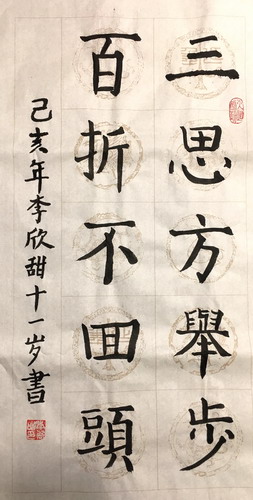 三思方舉步
百折不回頭
己亥年李欣甜十一岁書